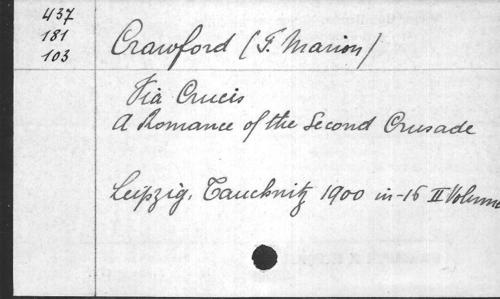 437
181
103
Crawford (F. Marion)
Via Crucis
A Romance of the Second Crusade
Leipzig, Tauchnitz 1900 in-16 II Volume